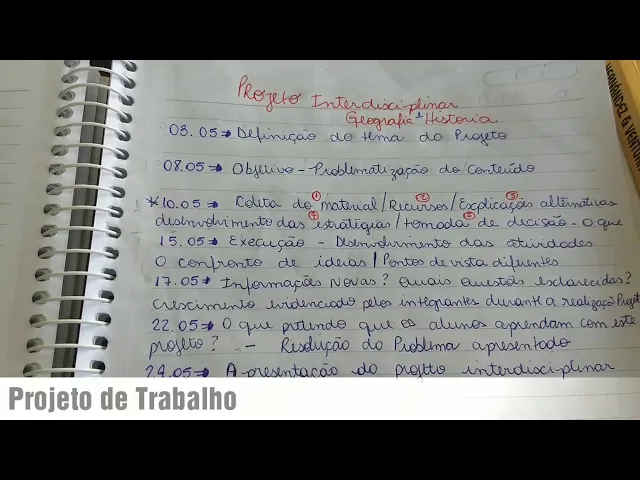 HERNÁNDEZ & VENTU
Projeto Interdisciplinar
Geografia e Historia
03.05 → Definição do tema do Projeto
08.05 → Objetivo - Problematização do Conteúdo
1 2 3
*10.05 → Coleta do material / Recursos / Explicações alternativas
4 5
desenvolvimento das estratégias / tomada de decisão - O que
15.05 → Execução - Desenvolvimento das atividades
O confronto de ideias / Pontos de vista diferentes
17.05 → Informações Novas? Quais questões esclarecidas?
crescimento evidenciado pelos integrantes durante a realização Projeto
22.05 → O que pretendo que os alunos aprendam com este
projeto? - Resolução do Problema apresentado
24.05 → Apresentação do projeto interdisciplinar
Projeto de Trabalho